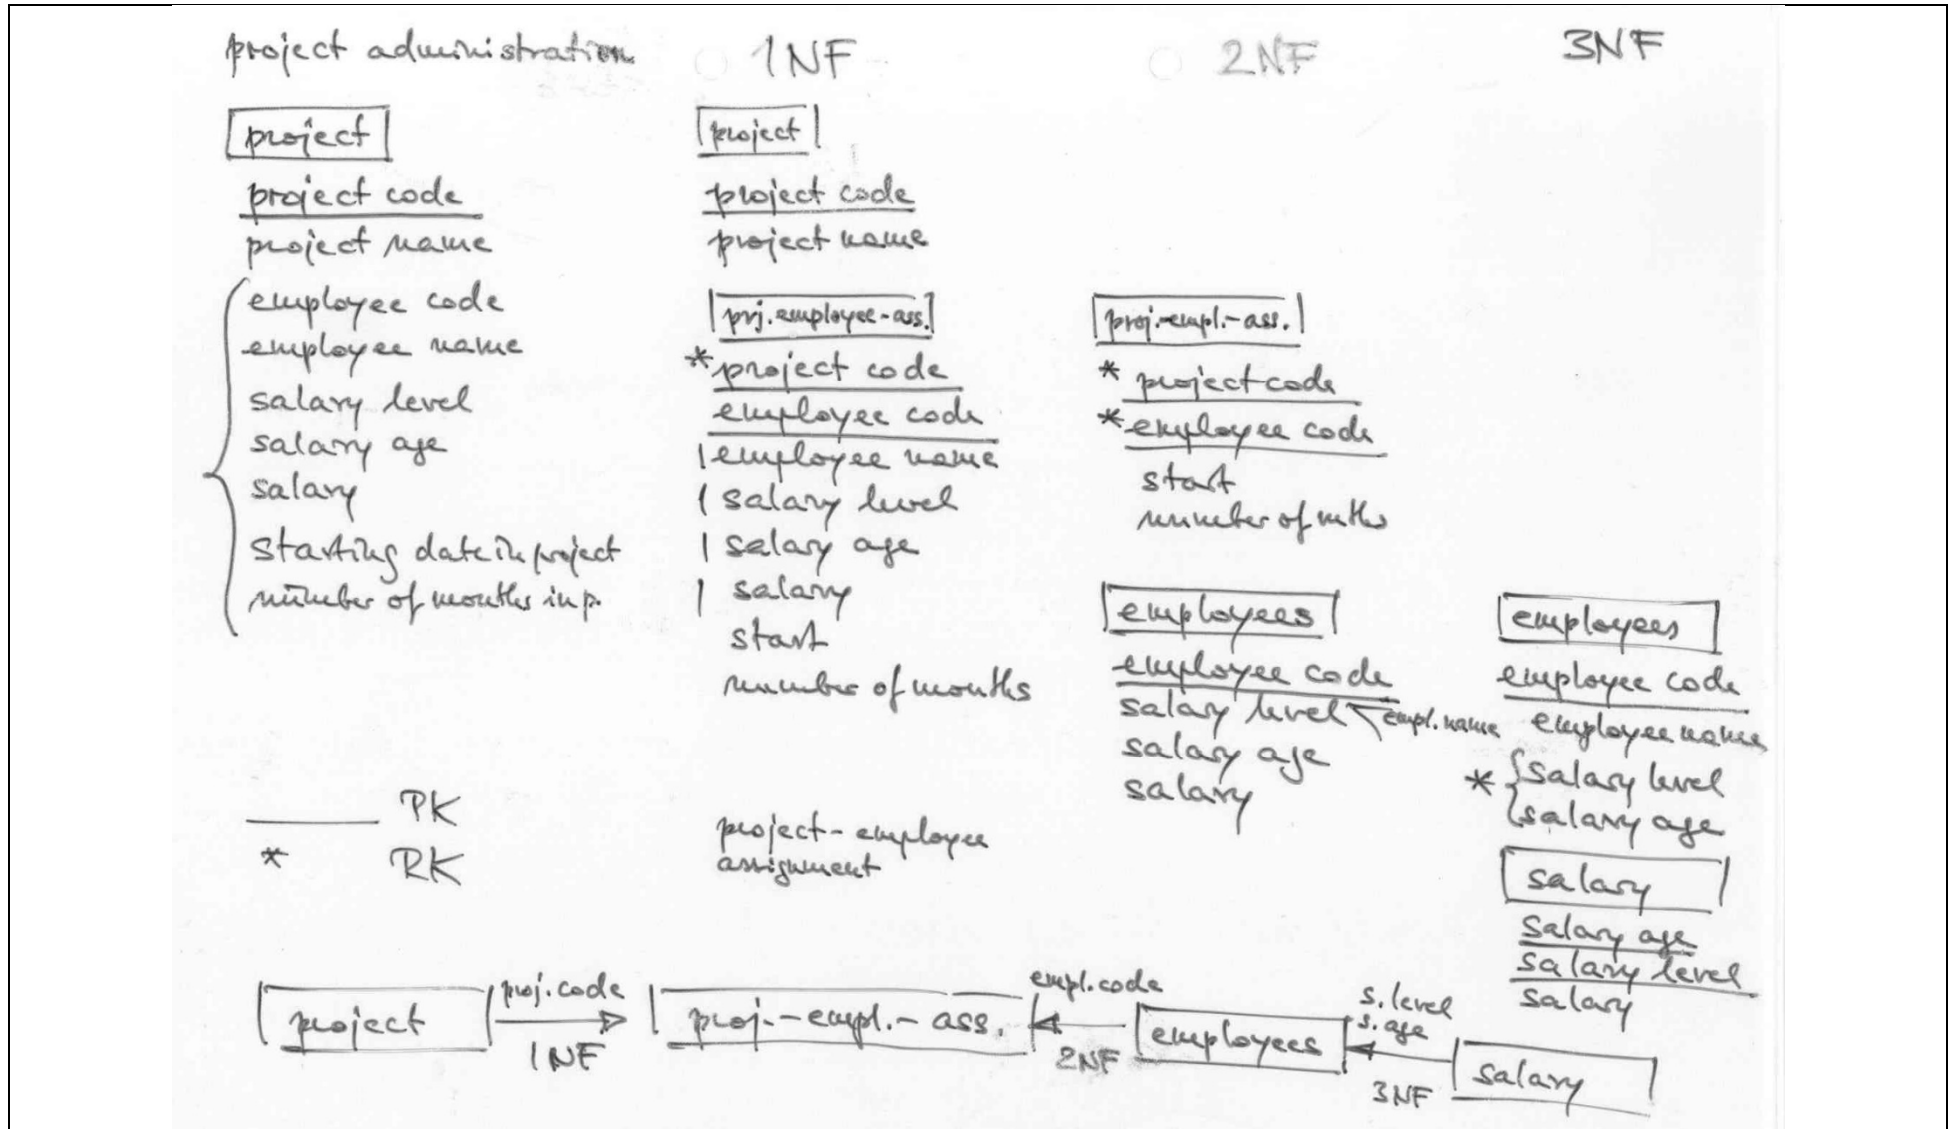 project administration
project
project code
project name
employee code
employee name
salary level
salary age
salary
starting date in project
number of months in p.
PK
* RK
1NF
project
project code
project name
prj.employee-ass.
* project code
employee code
employee name
salary level
salary age
salary
start
number of months
project-employee
assignment
2NF
proj.-empl.-ass.
* project code
* employee code
start
number of mths
employees
employee code
salary level empl.name
salary age
salary
3NF
employees
employee code
employee name
* salary level
salary age
salary
salary age
salary level
salary
project
proj.code
1NF
proj.-empl.-ass.
empl.code
2NF
employees
s.level
s.age
3NF
salary